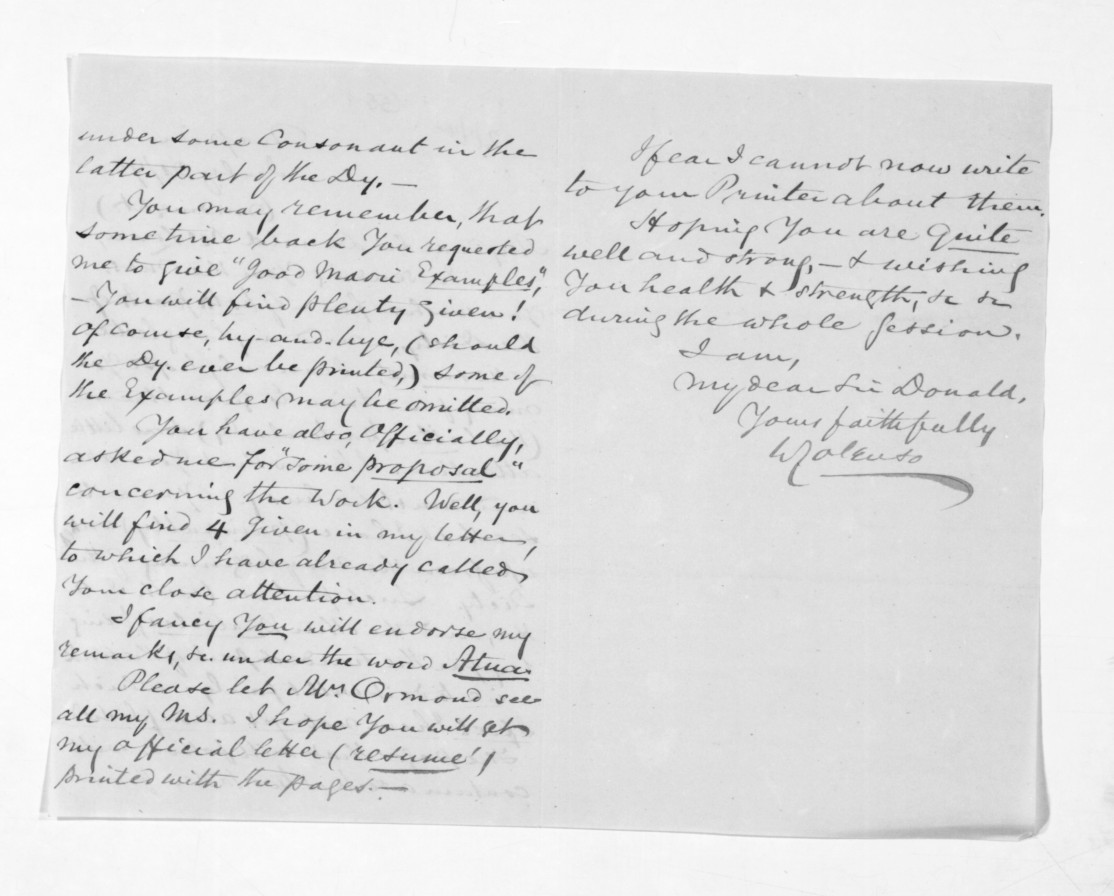 under some Consonant in the
latter part of the Dy.—
You may remember, that
sometime back You requested
me to give "Good Maori Examples",
— You will find plenty given!
of course, by-and-bye, (should
the Dy. ever be printed,) some of
the Examples may be omitted.
You have also, Officially,
asked me for "some proposal"
concerning the Work. Well, you
will find 4 given in my letter,
to which I have already called
Your close attention.
I fancy You will endorse my
remarks, &c. under the word Atua.
Please let Mr. Ormond see
all my MS. I hope You will get
my official letter (resumé)
printed with the pages.—
I fear I cannot now write
to your Printer about them.
Hoping You are Quite
well and strong,— & wishing
You health & strength, &c &c
during the whole Session.
I am,
My dear Sir Donald,
Yours faithfully
W Colenso